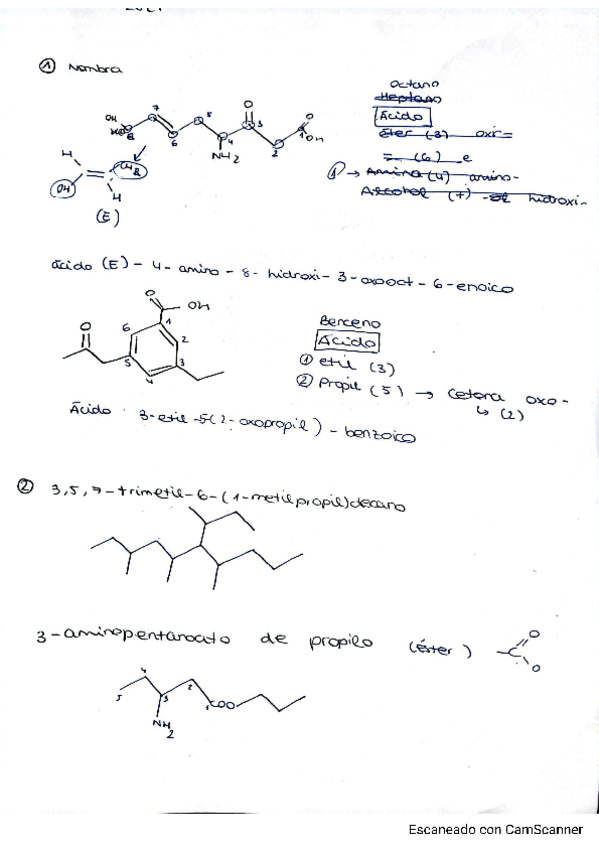 ① Nombra
Octano
Heptano
Ácido
éter (3) oxi=
= (6) e
① → Amina (4) amino-
Alcohol (7) - ol hidroxi-
OH 8 7 6 5 4 O 3 2 1 O OH
NH2
H
OH
H
(E)
ácido (E) - 4 - amino - 8 - hidroxi - 3 - oxooct - 6 - enoico
O OH
O 6 1 2 5 3 4
Benceno
Ácido
① etil (3)
② Propil (5) → Cetona oxo-
↳ (2)
Ácido 3-etil-5(2-oxopropil) - benzoico
② 3,5,7-trimetil-6-(1-metilpropil)decano
3-aminopentanoato de propilo (éster) -C O O
5 4 3 2 1 COO
NH2
Escaneado con CamScanner